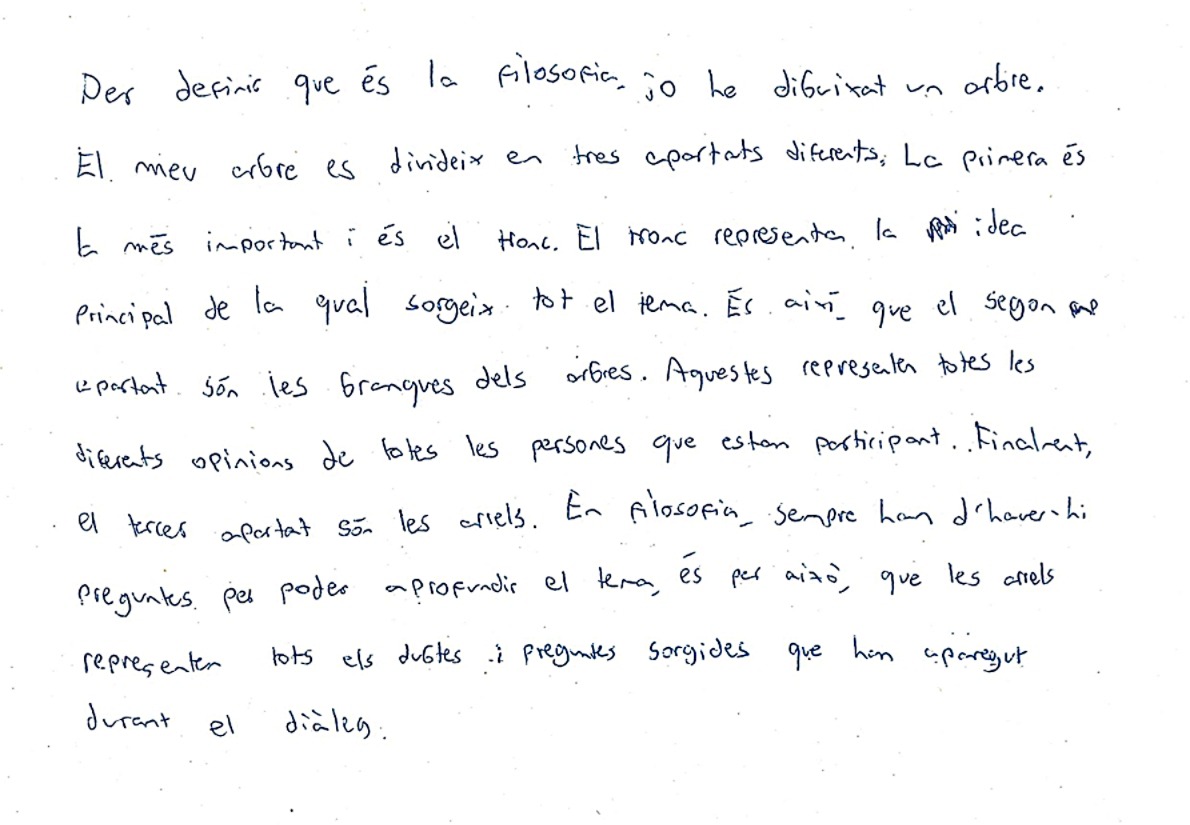 Per definir que és la filosofia, jo he dibuixat un arbre.
El meu arbre es divideix en tres apartats diferents. La primera és
la més important i és el tronc. El tronc representa la idea
principal de la qual sorgeix tot el tema. És així que el segon
apartat són les branques dels arbres. Aquestes representen totes les
diferents opinions de totes les persones que estan participant. Finalment,
el tercer apartat són les arrels. En filosofia, sempre han d'haver-hi
preguntes per poder aprofundir el tema, és per això, que les arrels
representen tots els dubtes i preguntes sorgides que han aparegut
durant el diàleg.